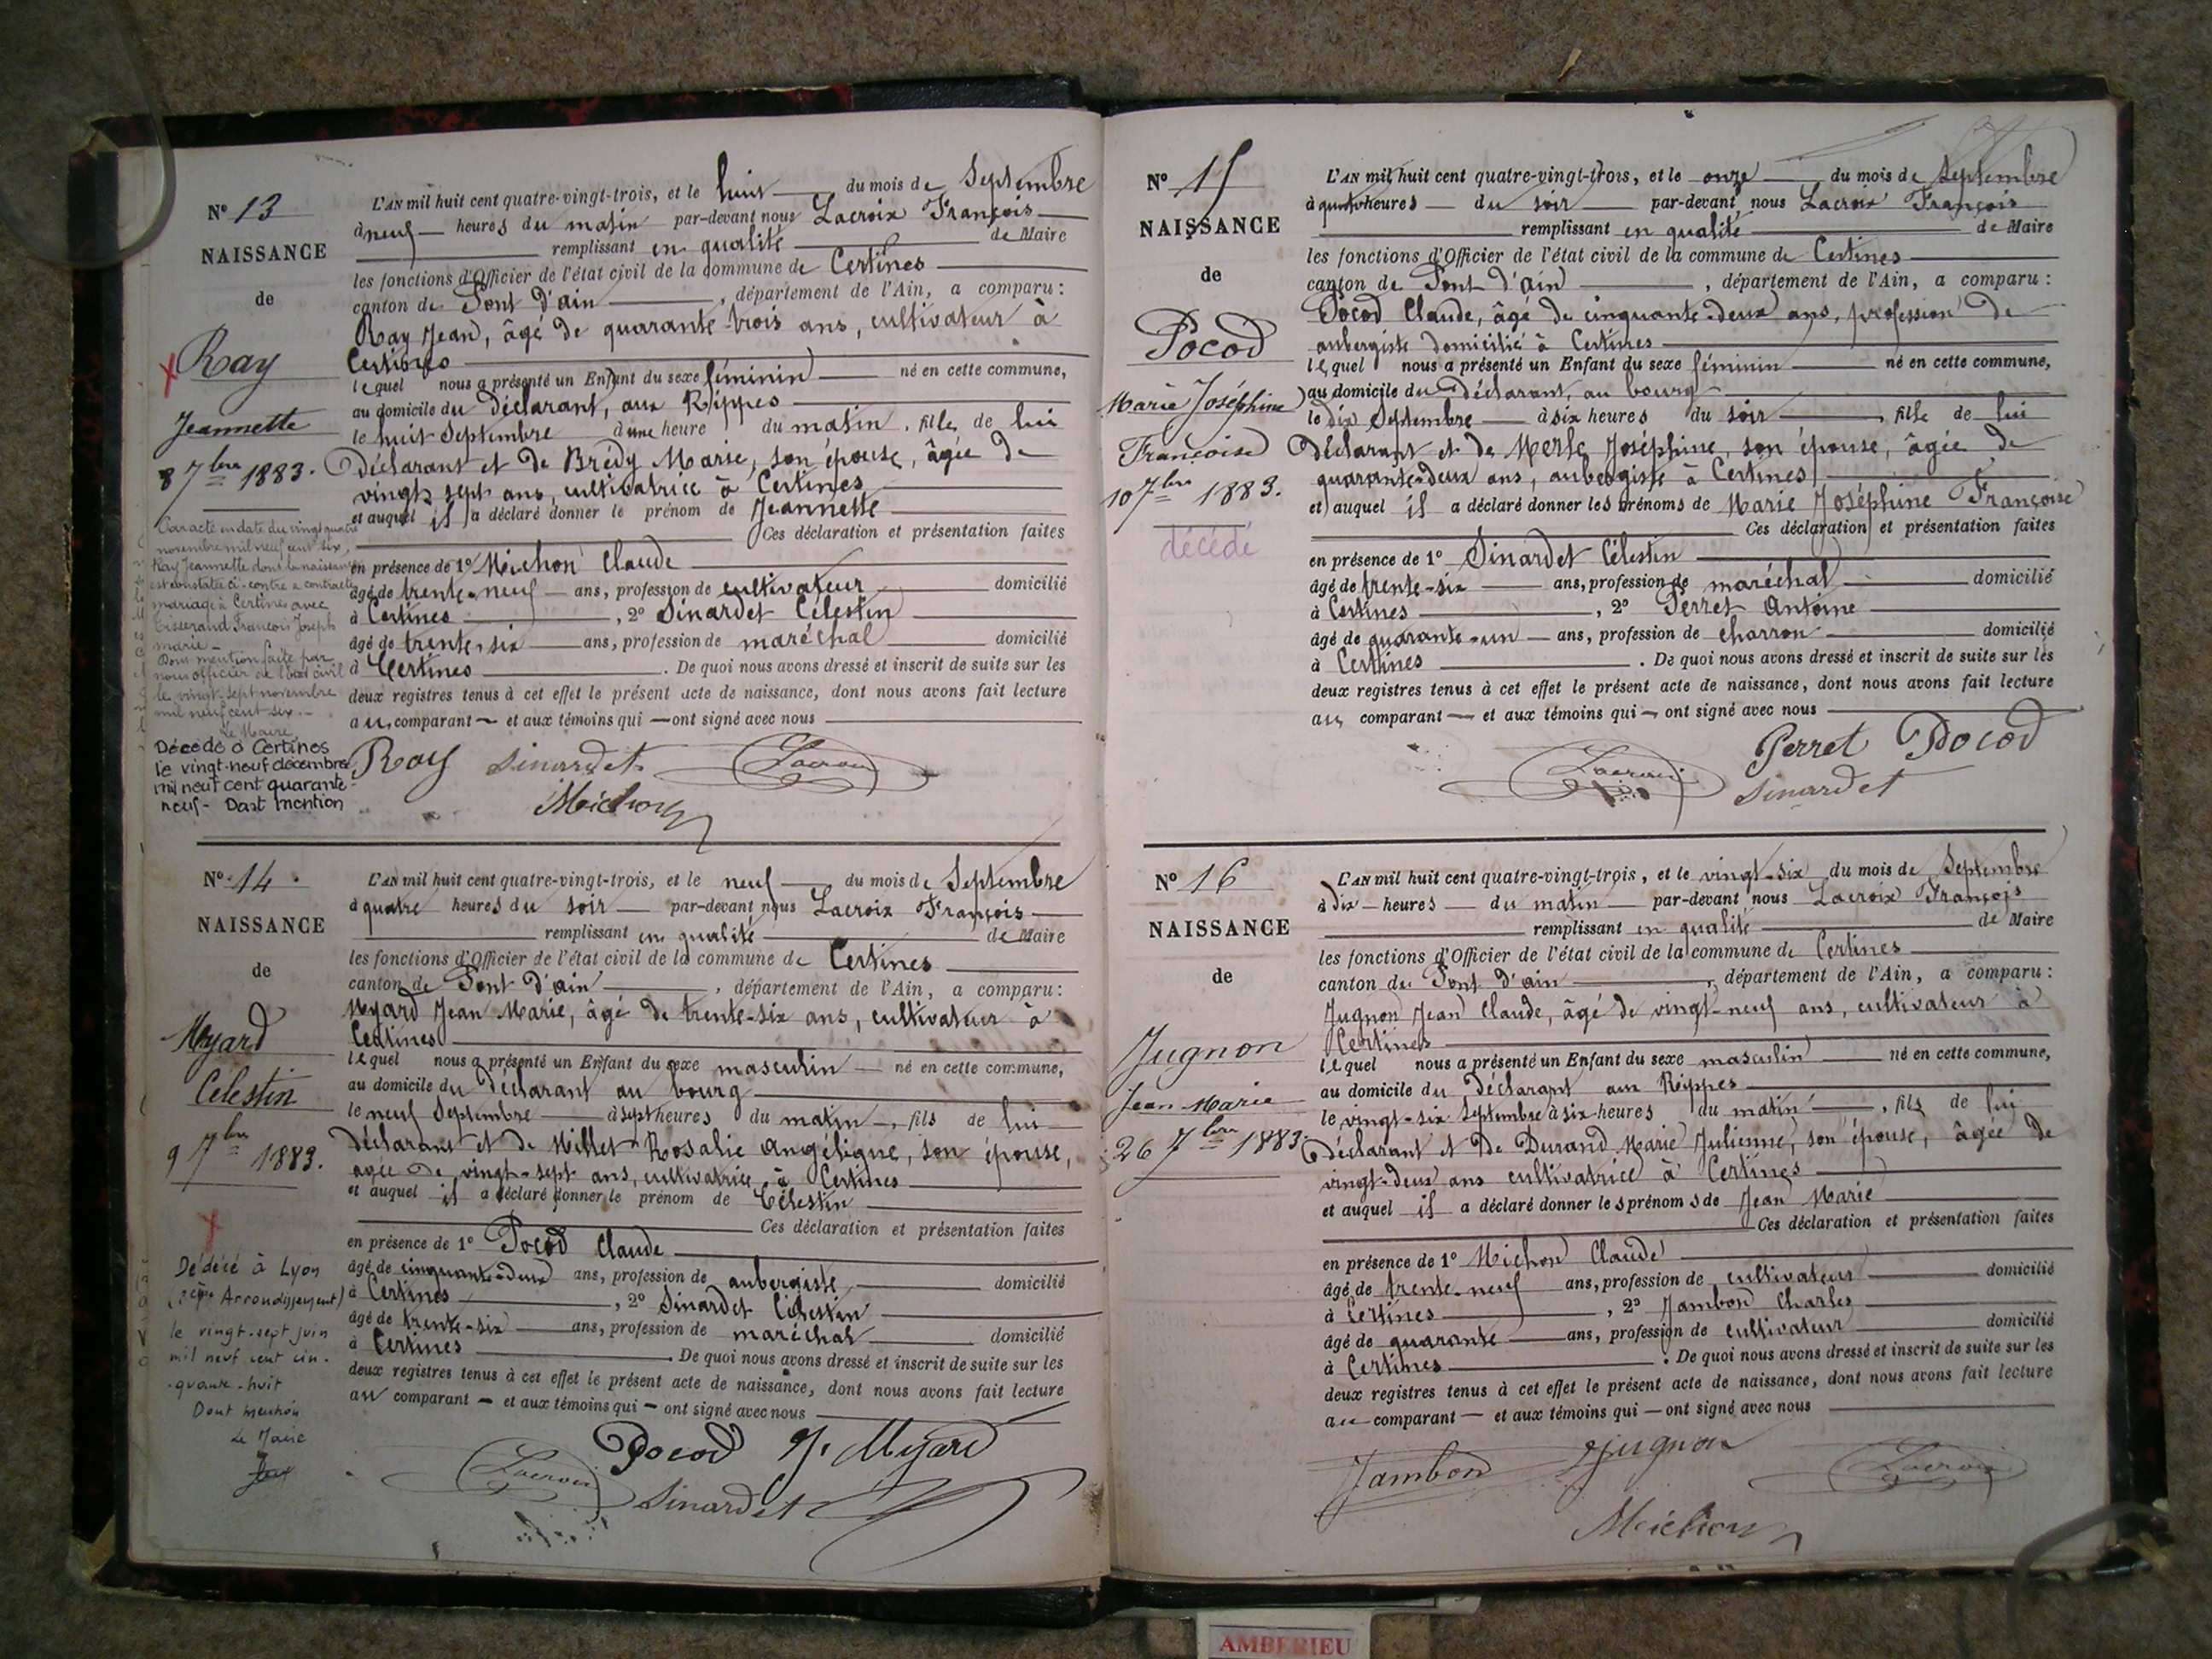 N° 13
NAISSANCE
de
Ray
Jeannette
8 7bre 1883.
Par acte en date du vingt quatre
novembre mil neuf cent six,
Ray Jeannette dont la naissance
est constatée ci-contre a contracté
mariage à Certines avec
François Joseph
marie -
Pour mention faite par
nous officier de l'état civil
le vingt-sept novembre
mil neuf cent six.-
Le Maire
Décédé à Certines
le vingt-neuf décembre
mil neuf cent quarante-
neuf - Dont mention
L'AN mil huit cent quatre-vingt-trois, et le huit du mois de Septembre
à neuf heures du matin par-devant nous Lacroix François
remplissant en qualité de Maire
les fonctions d'Officier de l'état civil de la commune de Certines
canton de Pont d'ain, département de l'Ain, a comparu :
Ray Jean, âgé de quarante-trois ans, cultivateur à
Certines
lequel nous a présenté un Enfant du sexe féminin né en cette commune,
au domicile du déclarant, aux Rippes
le huit Septembre à une heure du matin, fille de lui
déclarant et de Brédy Marie, son épouse, âgée de
vingt sept ans, cultivatrice à Certines
et auquel il a déclaré donner le prénom de Jeannette
Ces déclaration et présentation faites
en présence de 1° Michon Claude
âgé de trente-neuf ans, profession de cultivateur domicilié
à Certines, 2° Sinardet Célestin
âgé de trente-six ans, profession de maréchal domicilié
à Certines. De quoi nous avons dressé et inscrit de suite sur les
deux registres tenus à cet effet le présent acte de naissance, dont nous avons fait lecture
au comparant et aux témoins qui ont signé avec nous
Ray Sinardet Lacroix
Michon
N° 14
NAISSANCE
de
Myard
Célestin
9 7bre 1883.
Dédécé à Lyon
Arrondissement)
le vingt-sept juin
mil neuf cent cin-
quante-huit
Dont mention
Le Maire
L'AN mil huit cent quatre-vingt-trois, et le neuf du mois de Septembre
à quatre heures du soir par-devant nous Lacroix François
remplissant en qualité de Maire
les fonctions d'Officier de l'état civil de la commune de Certines
canton de Pont d'ain, département de l'Ain, a comparu :
Myard Jean Marie, âgé de trente-six ans, cultivateur à
Certines
lequel nous a présenté un Enfant du sexe masculin né en cette commune,
au domicile du déclarant au bourg
le neuf Septembre à sept heures du matin, fils de lui
déclarant et de Millet Rosalie Angélique, son épouse,
agée de vingt-sept ans, cultivatrice à Certines
et auquel il a déclaré donner le prénom de Célestin
Ces déclaration et présentation faites
en présence de 1° Pocod Claude
âgé de cinquante-deux ans, profession de aubergiste domicilié
à Certines, 2° Sinardet Célestin
âgé de trente-six ans, profession de maréchal domicilié
à Certines. De quoi nous avons dressé et inscrit de suite sur les
deux registres tenus à cet effet le présent acte de naissance, dont nous avons fait lecture
au comparant et aux témoins qui ont signé avec nous
Pocod J. Myard
Lacroix Sinardet
N° 15
NAISSANCE
de
Pocod
Marie Joséphine
Françoise
10 7bre 1883.
décédé
L'AN mil huit cent quatre-vingt-trois, et le onze du mois de Septembre
à quatre heures du soir par-devant nous Lacroix François
remplissant en qualité de Maire
les fonctions d'Officier de l'état civil de la commune de Certines
canton de Pont d'ain, département de l'Ain, a comparu :
Pocod Claude, âgé de cinquante-deux ans, profession de
aubergiste domicilié à Certines
lequel nous a présenté un Enfant du sexe féminin né en cette commune,
au domicile du déclarant, au bourg
le dix Septembre à six heures du soir, fille de lui
déclarant et de Merle Joséphine, son épouse, âgée de
quarante-deux ans, aubergiste à Certines
et auquel il a déclaré donner les prénoms de Marie Joséphine Françoise
Ces déclaration et présentation faites
en présence de 1° Sinardet Célestin
âgé de trente-six ans, profession de maréchal domicilié
à Certines, 2° Perret Antoine
âgé de quarante-un ans, profession de charron domicilié
à Certines. De quoi nous avons dressé et inscrit de suite sur les
deux registres tenus à cet effet le présent acte de naissance, dont nous avons fait lecture
au comparant et aux témoins qui ont signé avec nous
Perret Pocod
Lacroix Sinardet
N° 16
NAISSANCE
de
Jugnon
Jean Marie
26 7bre 1883
L'AN mil huit cent quatre-vingt-trois, et le vingt-six du mois de Septembre
à dix heures du matin par-devant nous Lacroix François
remplissant en qualité de Maire
les fonctions d'Officier de l'état civil de la commune de Certines
canton de Pont d'ain, département de l'Ain, a comparu :
Jugnon Jean Claude, âgé de vingt-neuf ans, cultivateur à
Certines
lequel nous a présenté un Enfant du sexe masculin né en cette commune,
au domicile du déclarant aux Rippes
le vingt-six Septembre à six heures du matin, fils de lui
déclarant et de Durand Marie Julienne, son épouse, âgée de
vingt-deux ans cultivatrice à Certines
et auquel il a déclaré donner les prénoms de Jean Marie
Ces déclaration et présentation faites
en présence de 1° Michon Claude
âgé de trente-neuf ans, profession de cultivateur domicilié
à Certines, 2° Jambon Charles
âgé de quarante ans, profession de cultivateur domicilié
à Certines. De quoi nous avons dressé et inscrit de suite sur les
deux registres tenus à cet effet le présent acte de naissance, dont nous avons fait lecture
au comparant et aux témoins qui ont signé avec nous
Jambon Jugnon Lacroix
Michon
AMBERIEU